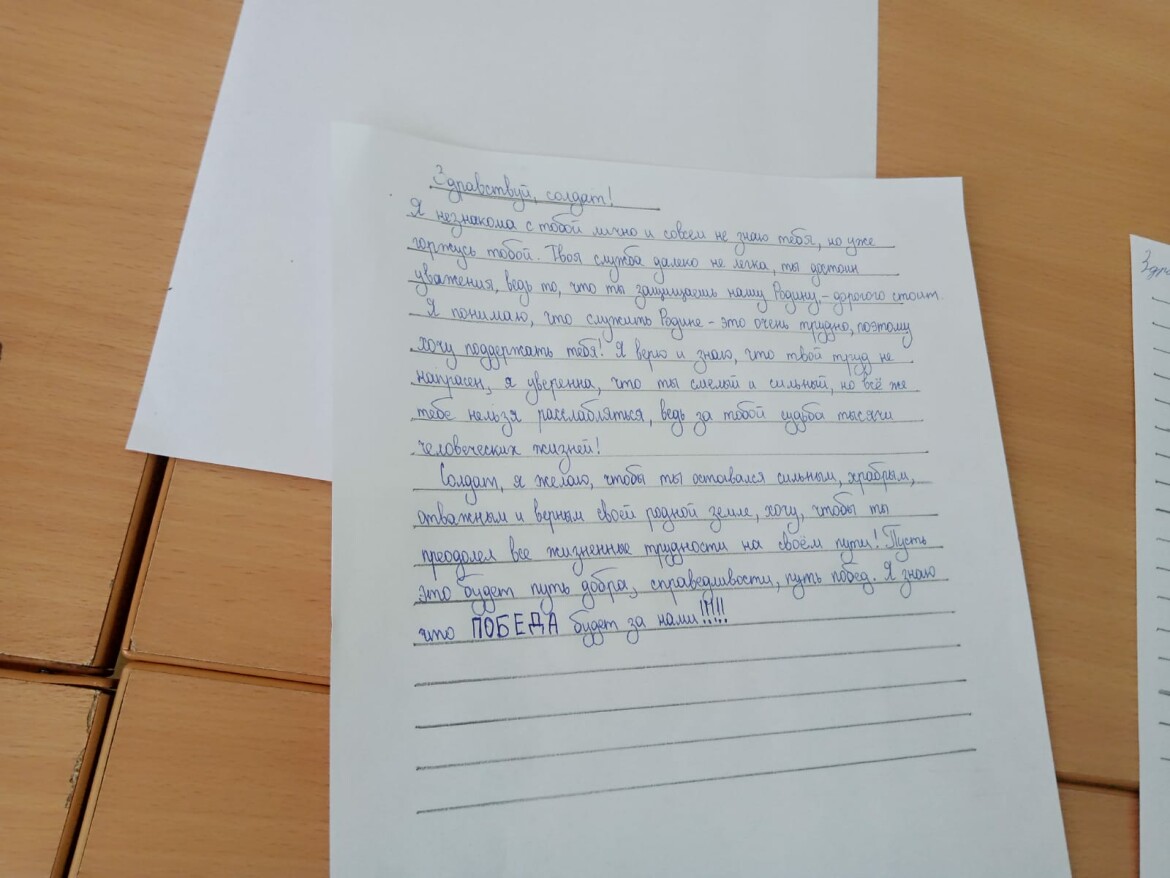 Здравствуй, солдат!
Я незнакома с тобой лично и совсем не знаю тебя, но уже
горжусь тобой. Твоя служба далеко не легка, ты достоин
уважения, ведь то, что ты защищаешь нашу Родину, - дорогого стоит.
Я понимаю, что служить Родине - это очень трудно, поэтому
хочу поддержать тебя! Я верю и знаю, что твой труд не
напрасен, я уверенна, что ты смелый и сильный, но всё же
тебе нельзя расслабляться, ведь за тобой судьба тысячи
человеческих жизней!
Солдат, я желаю, чтобы ты оставался сильным, храбрым,
отважным и верным своей родной земле, хочу, чтобы ты
преодолел все жизненные трудности на своём пути! Пусть
это будет путь добра, справедливости, путь побед. Я знаю
что ПОБЕДА будет за нами!!!!!